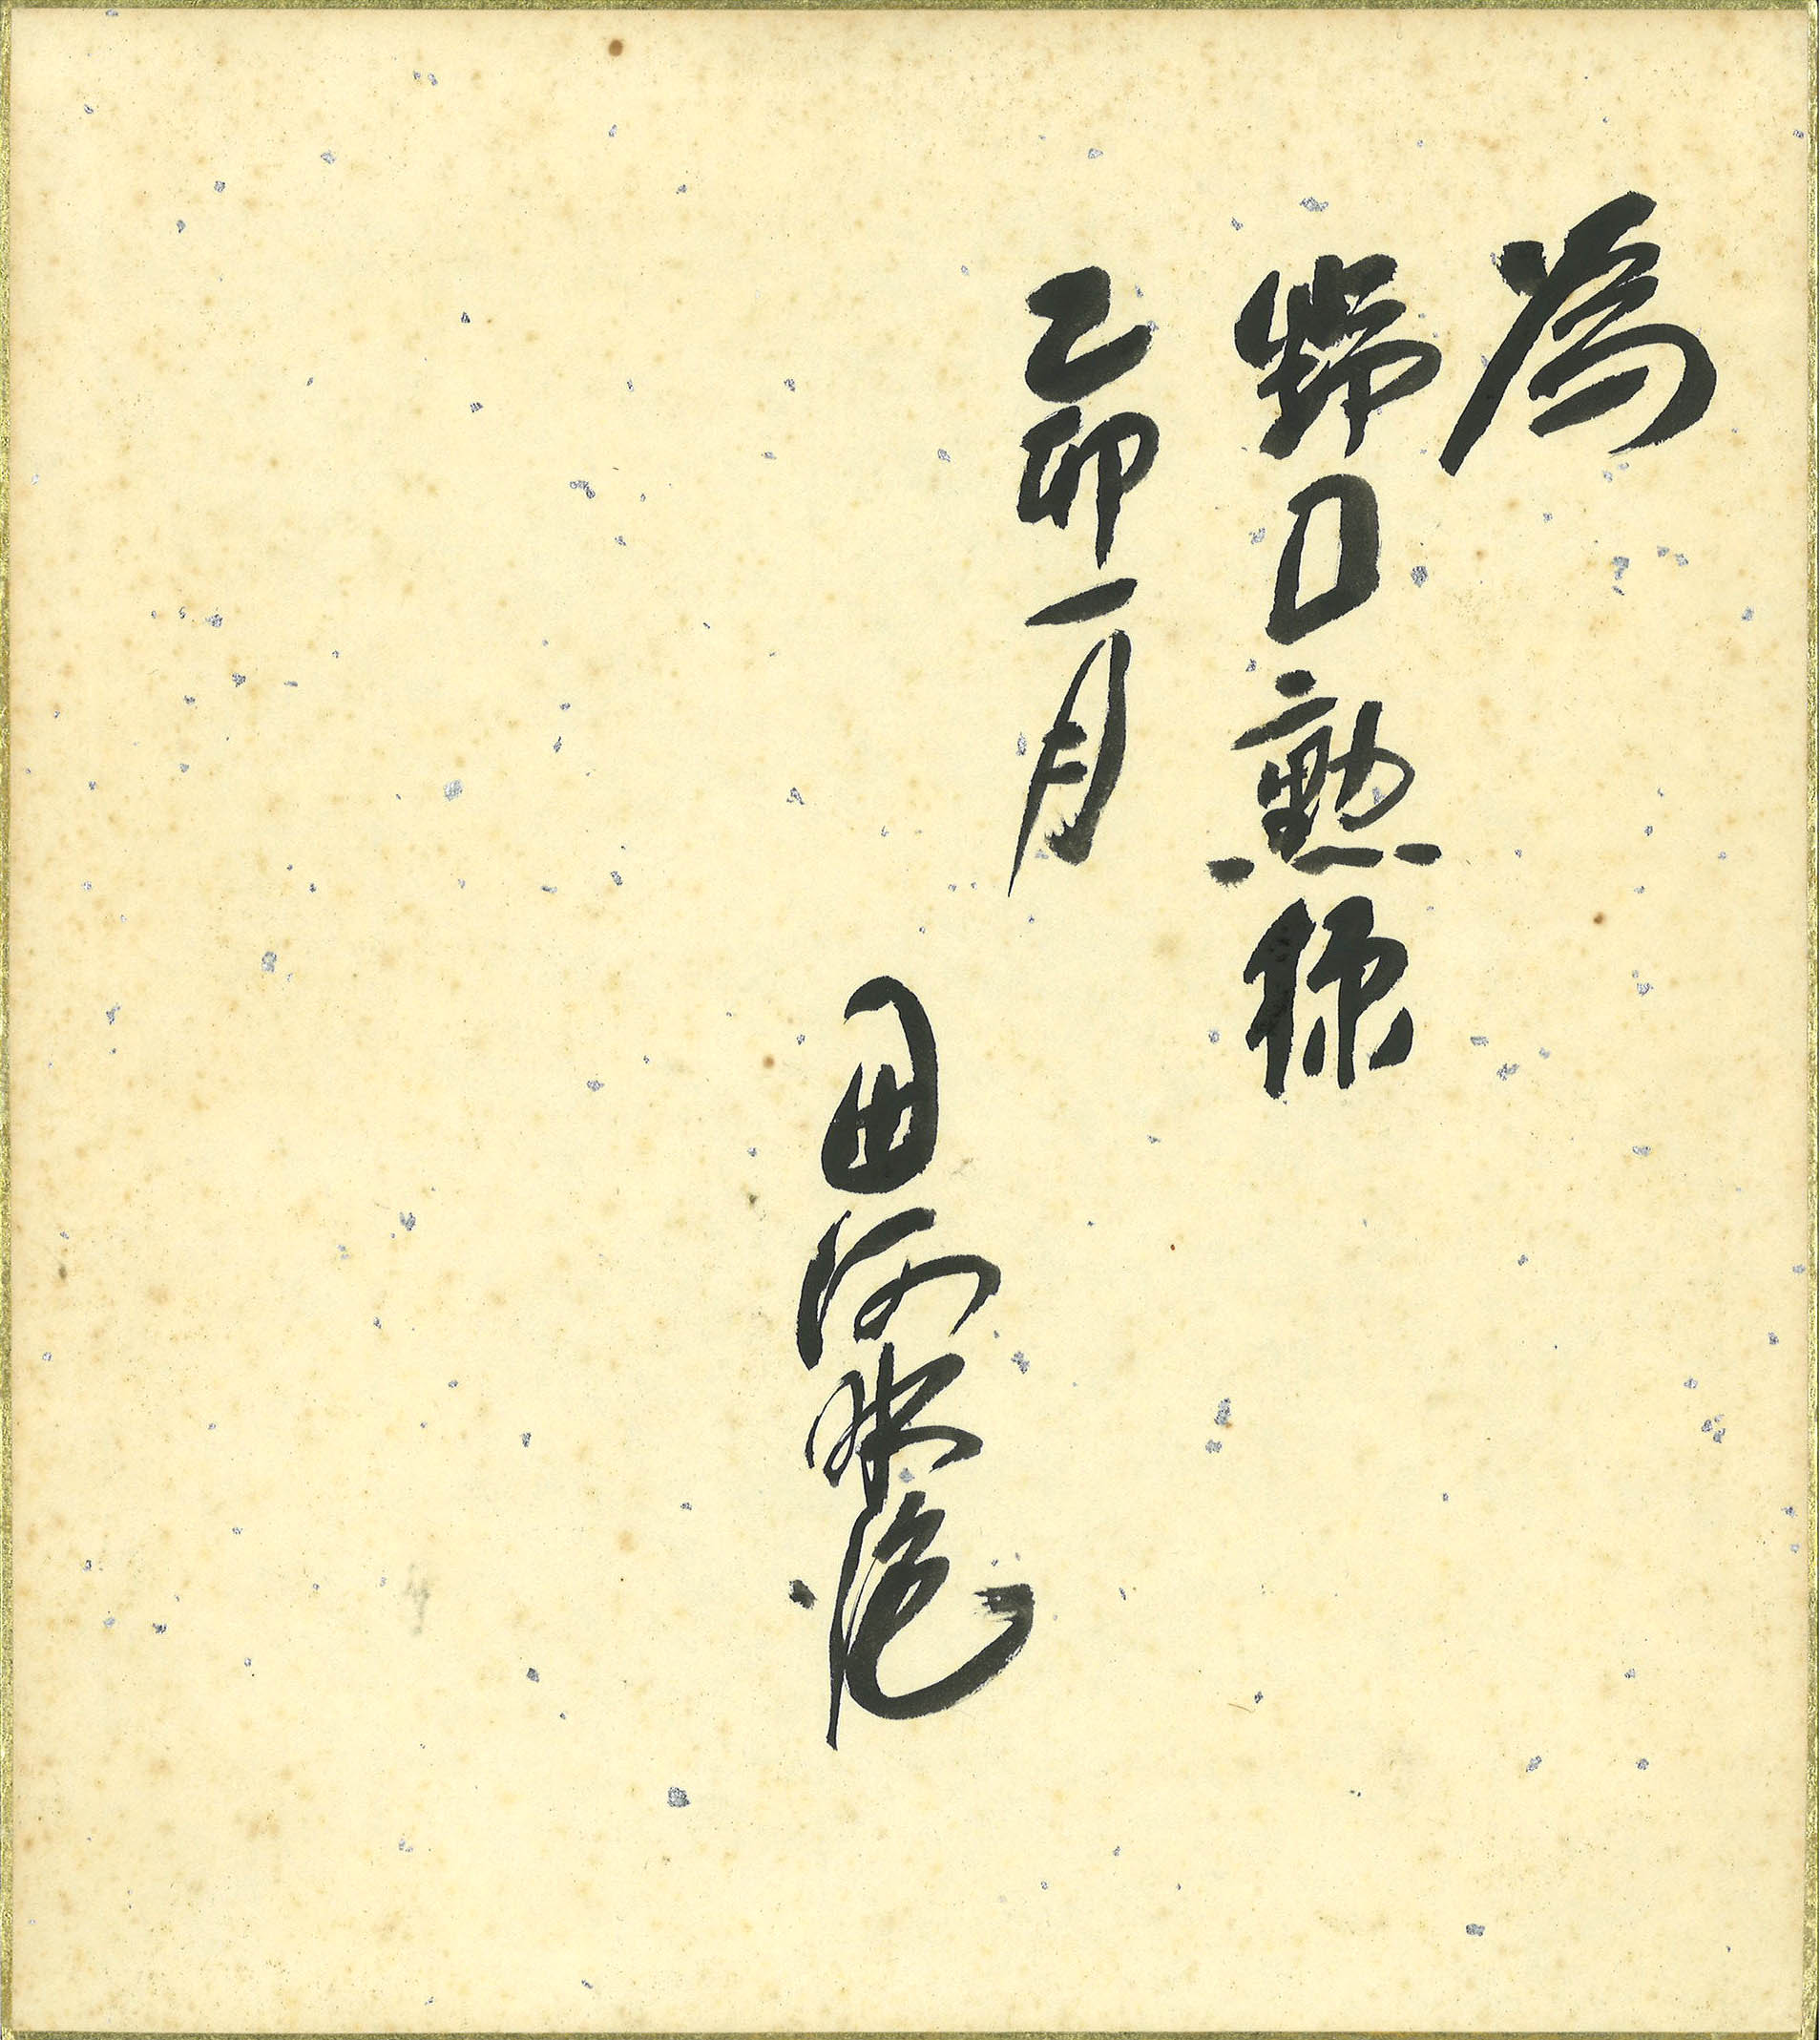 為
野口勲様
乙卯一月
田河水泡